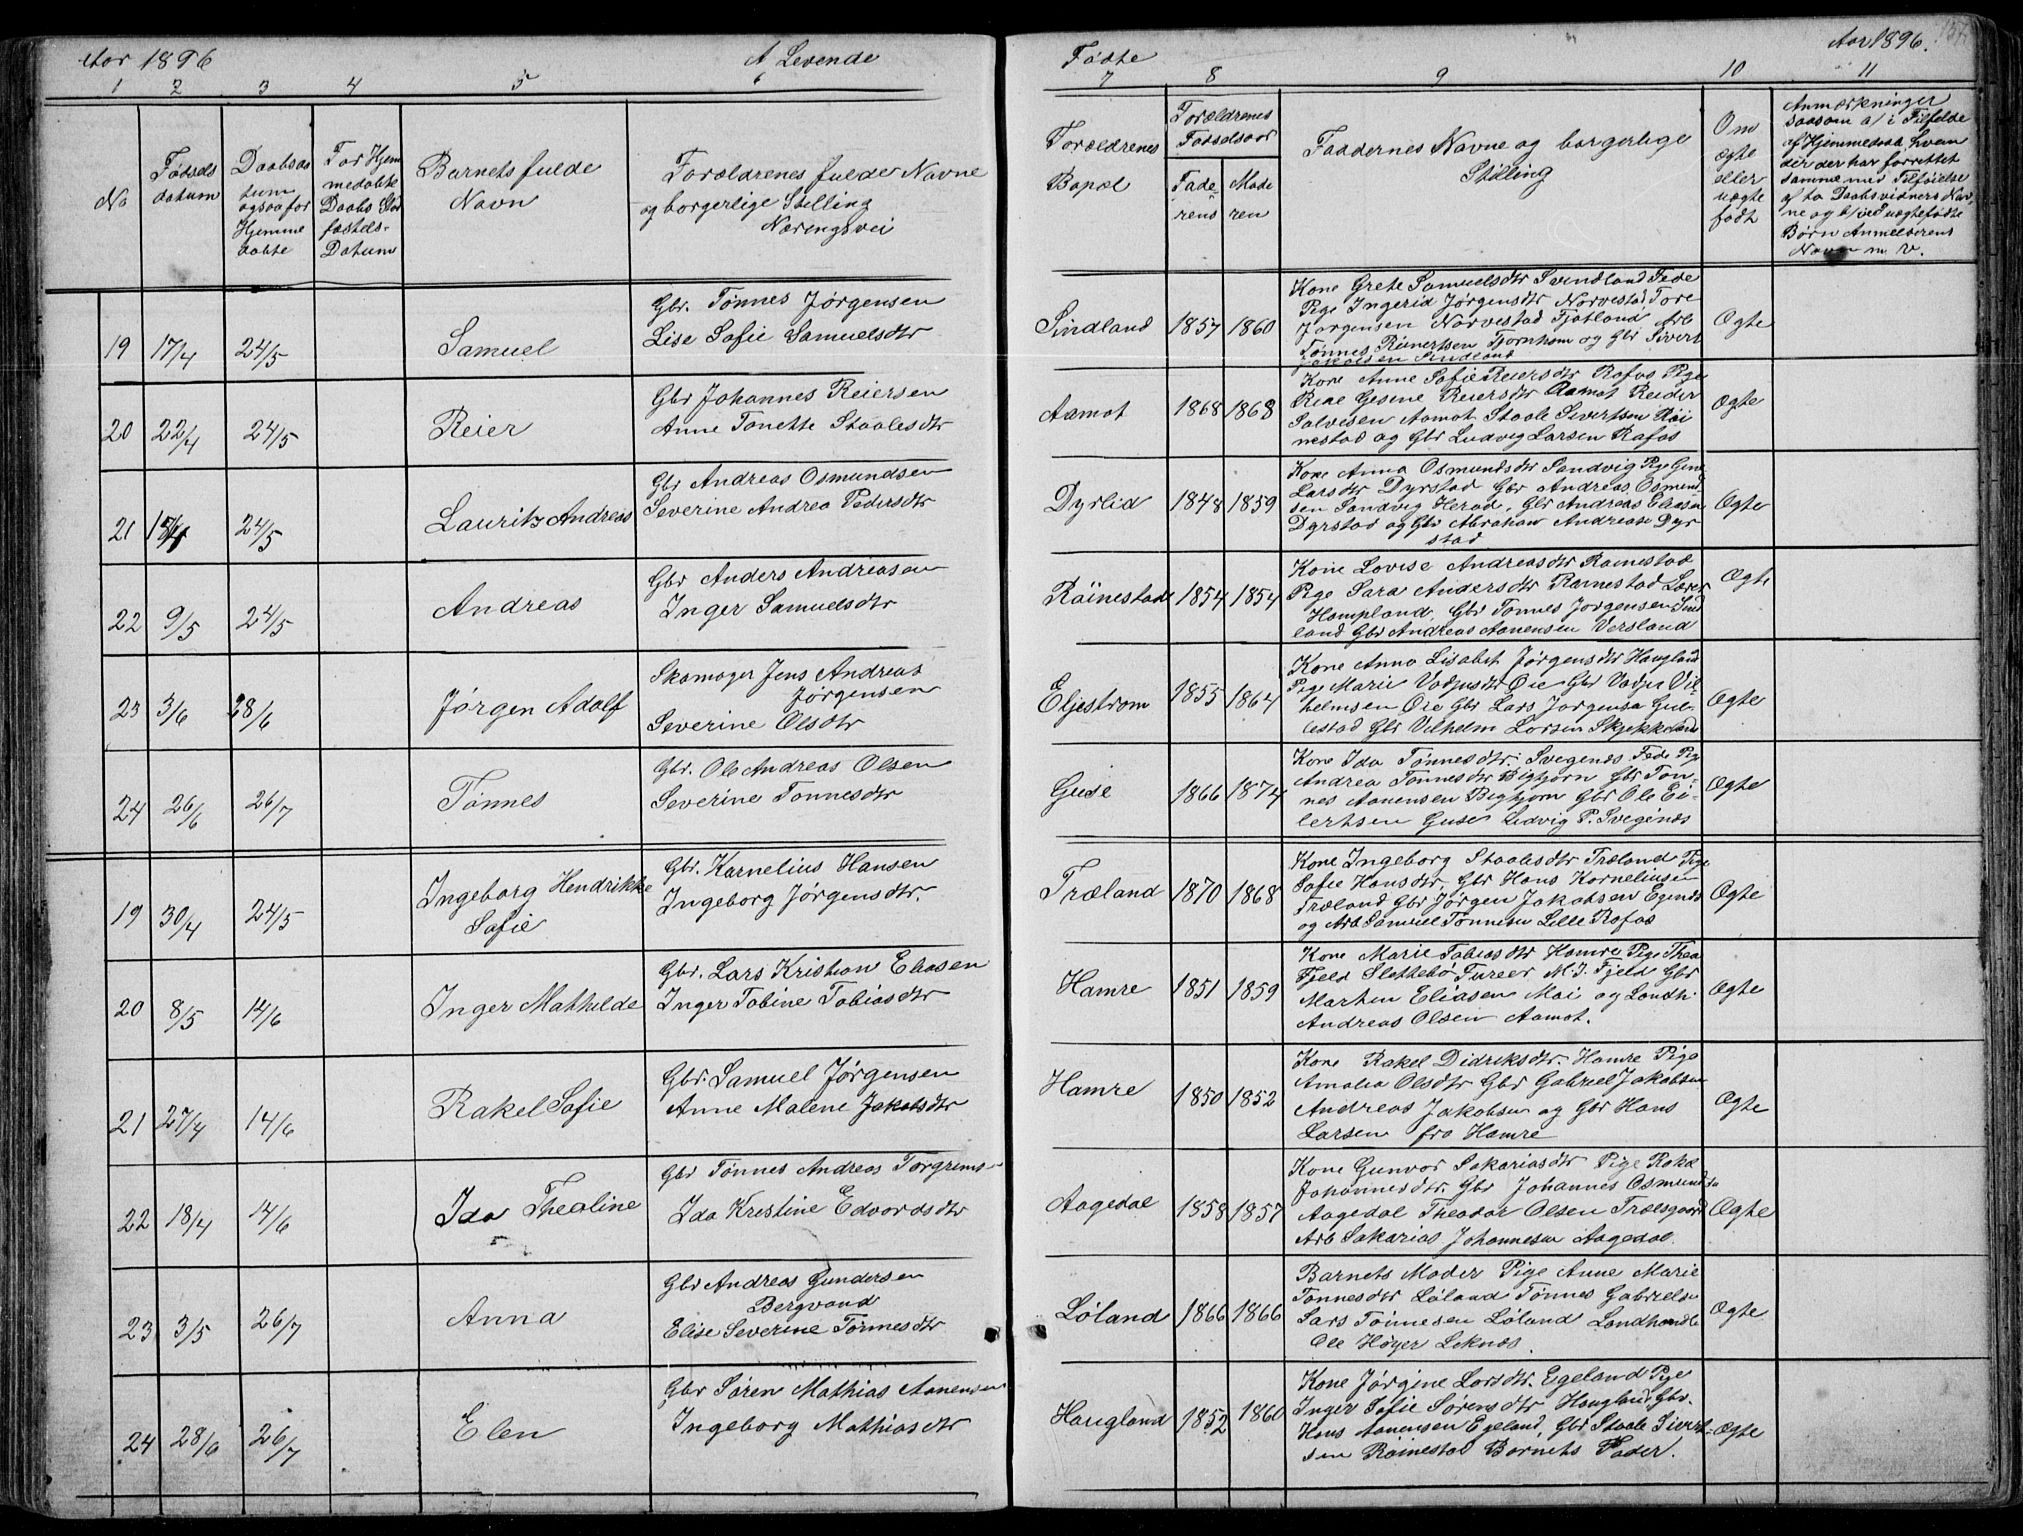 Aar 1896
A Levende
Fødte
Aar 1896.
1 2 3 4 5 6 7 8 9 10 11
No
Fødsels datum
Daabsdatum ogsaa for Hjemmedøbte
For Hjemmedøbte Daabs Stadfæstels- Datum
Barnets fulde Navn
Forældrenes fulde Navne og borgerlige Stilling Næringsvei
Forældrenes Bopæl
Forældrenes Fødselsaar
Faderens
Moderen
Faddernes Navne og borgerlige Stilling
Om ægte eller uægte født
Anmærkninger saasom a/ i Tilfælde af Hjemmedaab, hvem der har forrettet samme med Tilføielse af to Daabsvidners Navne og b/ ved uægtefødte Børn Anmelderens Navn m. v.
19 17/4 24/5 Samuel
Gbr. Tønnes Jørgensen
Lise Sofie Samuelsdtr
Sindland 1857 1860
Kone Grete Samuelsdtr Svindland Fede
Pige Ingerid Jørgensdtr Norvestad Tore
Jørgensen Norvestad Fjotland Arb
Tønnes Reinertsen Tjørnhom og Gbr Sivert
Jakobsen Sindland
Ægte
20 22/4 24/5 Reier
Gbr Johannes Reiersen
Anne Tonette Staalesdtr
Aamot 1868 1868
Kone Anne Sofie Reiersdtr Rafos Pige
Gesine Reiersdtr Aamot Reider
Salvesen Aamot Staale Sivertsen Röi
nestad og Gbr Ludvig Larsen Rafos
Ægte
21 24/5 Lauritz Andreas
Gbr Andreas Osmundsen
Severine Andrea Pedersdtr
Dyrlid 1848 1859
Kone Anna Osmundsdtr Sandvig Pige Gine
Larsdtr Dyrstad Gbr Andreas Osmund
sen Sandvig Herad, Gbr Andreas Eliasen
Dyrstad og Gbr Abraham Andrease Dyr
stad
Ægte
22 9/5 24/5 Andreas
Gbr Anders Andreasen
Inger Samuelsdtr
Röinestad 1854 1854
Kone Lovise Andreasdtr Röinestad
Pige Sara Andersdtr Röinestad Lærer
Hompland, Gbr Tønnes Jørgensen Sind
land Gbr Andreas Aanensen Versland
Ægte
23 3/6 28/6 Jørgen Adolf
Skomager Jens Andreas
Jørgensen
Severine Olsdtr
Eljestrøm 1855 1864
Kone Anna Lisabet Jørgensdtr Haugland
Pige Marie Vadjusdtr Öie Gbr Vadju Vil
helmsen Öie Gbr Lars Jørgensen Gul
lestad Gbr Vilhelm Larsen Skjekkeland
Ægte
24 26/6 26/7 Tønnes
Gbr. Ole Andreas Olsen
Severine Tønnesdtr
Guse 1866 1874
Kone Ida Tønnesdtr. Svegenes Fede Pig
Andrea Tønnesdtr Bighjorn Gbr Tøn-
nes Aanensen Bighjorn Gbr Ole Ei-
lertsen Guse Ludvig P. Svegenes
Ægte
19 30/4 24/5 Ingeborg Hendrikke
Sofie
Gbr. Kornelius Hansen
Ingeborg Jørgensdtr.
Træland 1870 1868
Kone Ingeborg Staalesdtr Træland Pige
Sofie Hansdtr, Gbr Hans Korneliusen
Træland Gbr Jørgen Jakobsen Egenes
og Arb Samuel Tønnesen Lille Rafos
Ægte
20 8/5 14/6 Inger Mathilde
Gbr. Lars Kristian Eliasen
Inger Tobine Tobiasdtr
Hamre 1851 1859
Kone Marie Tobiasdtr Hamre Pige Thea
Fjeld Slottebø Fureer M. J. Fjeld Gbr
Marten Eliasen Moi og Landh.
Andreas Olsen Aamot.
Ægte
21 27/4 14/6 Rakel Sofie
Gbr. Samuel Jørgensen
Anne Malene Jakobsdtr
Hamre 1850 1852
Kone Rakel Didriksdtr. Hamre Pige
Amalia Olsdtr Gbr Gabriel Jakobsen
Andreas Jakobsen og Gbr Hans
Larsen fra Hamre
Ægte
22 18/4 14/6 Ida Thealine
Gbr Tønnes Andreas Torgrims-
Ida Kristine Edvardsdtr
Aagedal 1858 1857
Kone Gunvor Sakariasdtr Pige Rakel
Johannesdtr. Gbr Johannes Osmunds
Aagedal Theodor Olsen Trælsgaard
Arb Sakarias Johannesen Aagedal.
Ægte
23 3/5 26/7 Anna
Gbr Andreas Gundersen
Bergvand
Elise Severine Tønnesdtr
Løland 1866 1866
Barnets Moder Pige Anne Marie
Tønnesdtr Løland Tønnes Gabrielsen
Lars Tønnesen Løland Landhandle
Ole Høyer Leknes.
Ægte
24 28/6 26/7 Elen
Gbr Søren Mathias Aanensen
Ingeborg Mathiasdtr
Haugland 1852 1860
Kone Jørgine Larsdtr. Egeland Pige
Inger Sofie Sørensdtr Haugland, Gbr.
Hans Aanensen Egeland, Gbr Staale Sivert-
sen Röinestad Barnets Fader.
Ægte